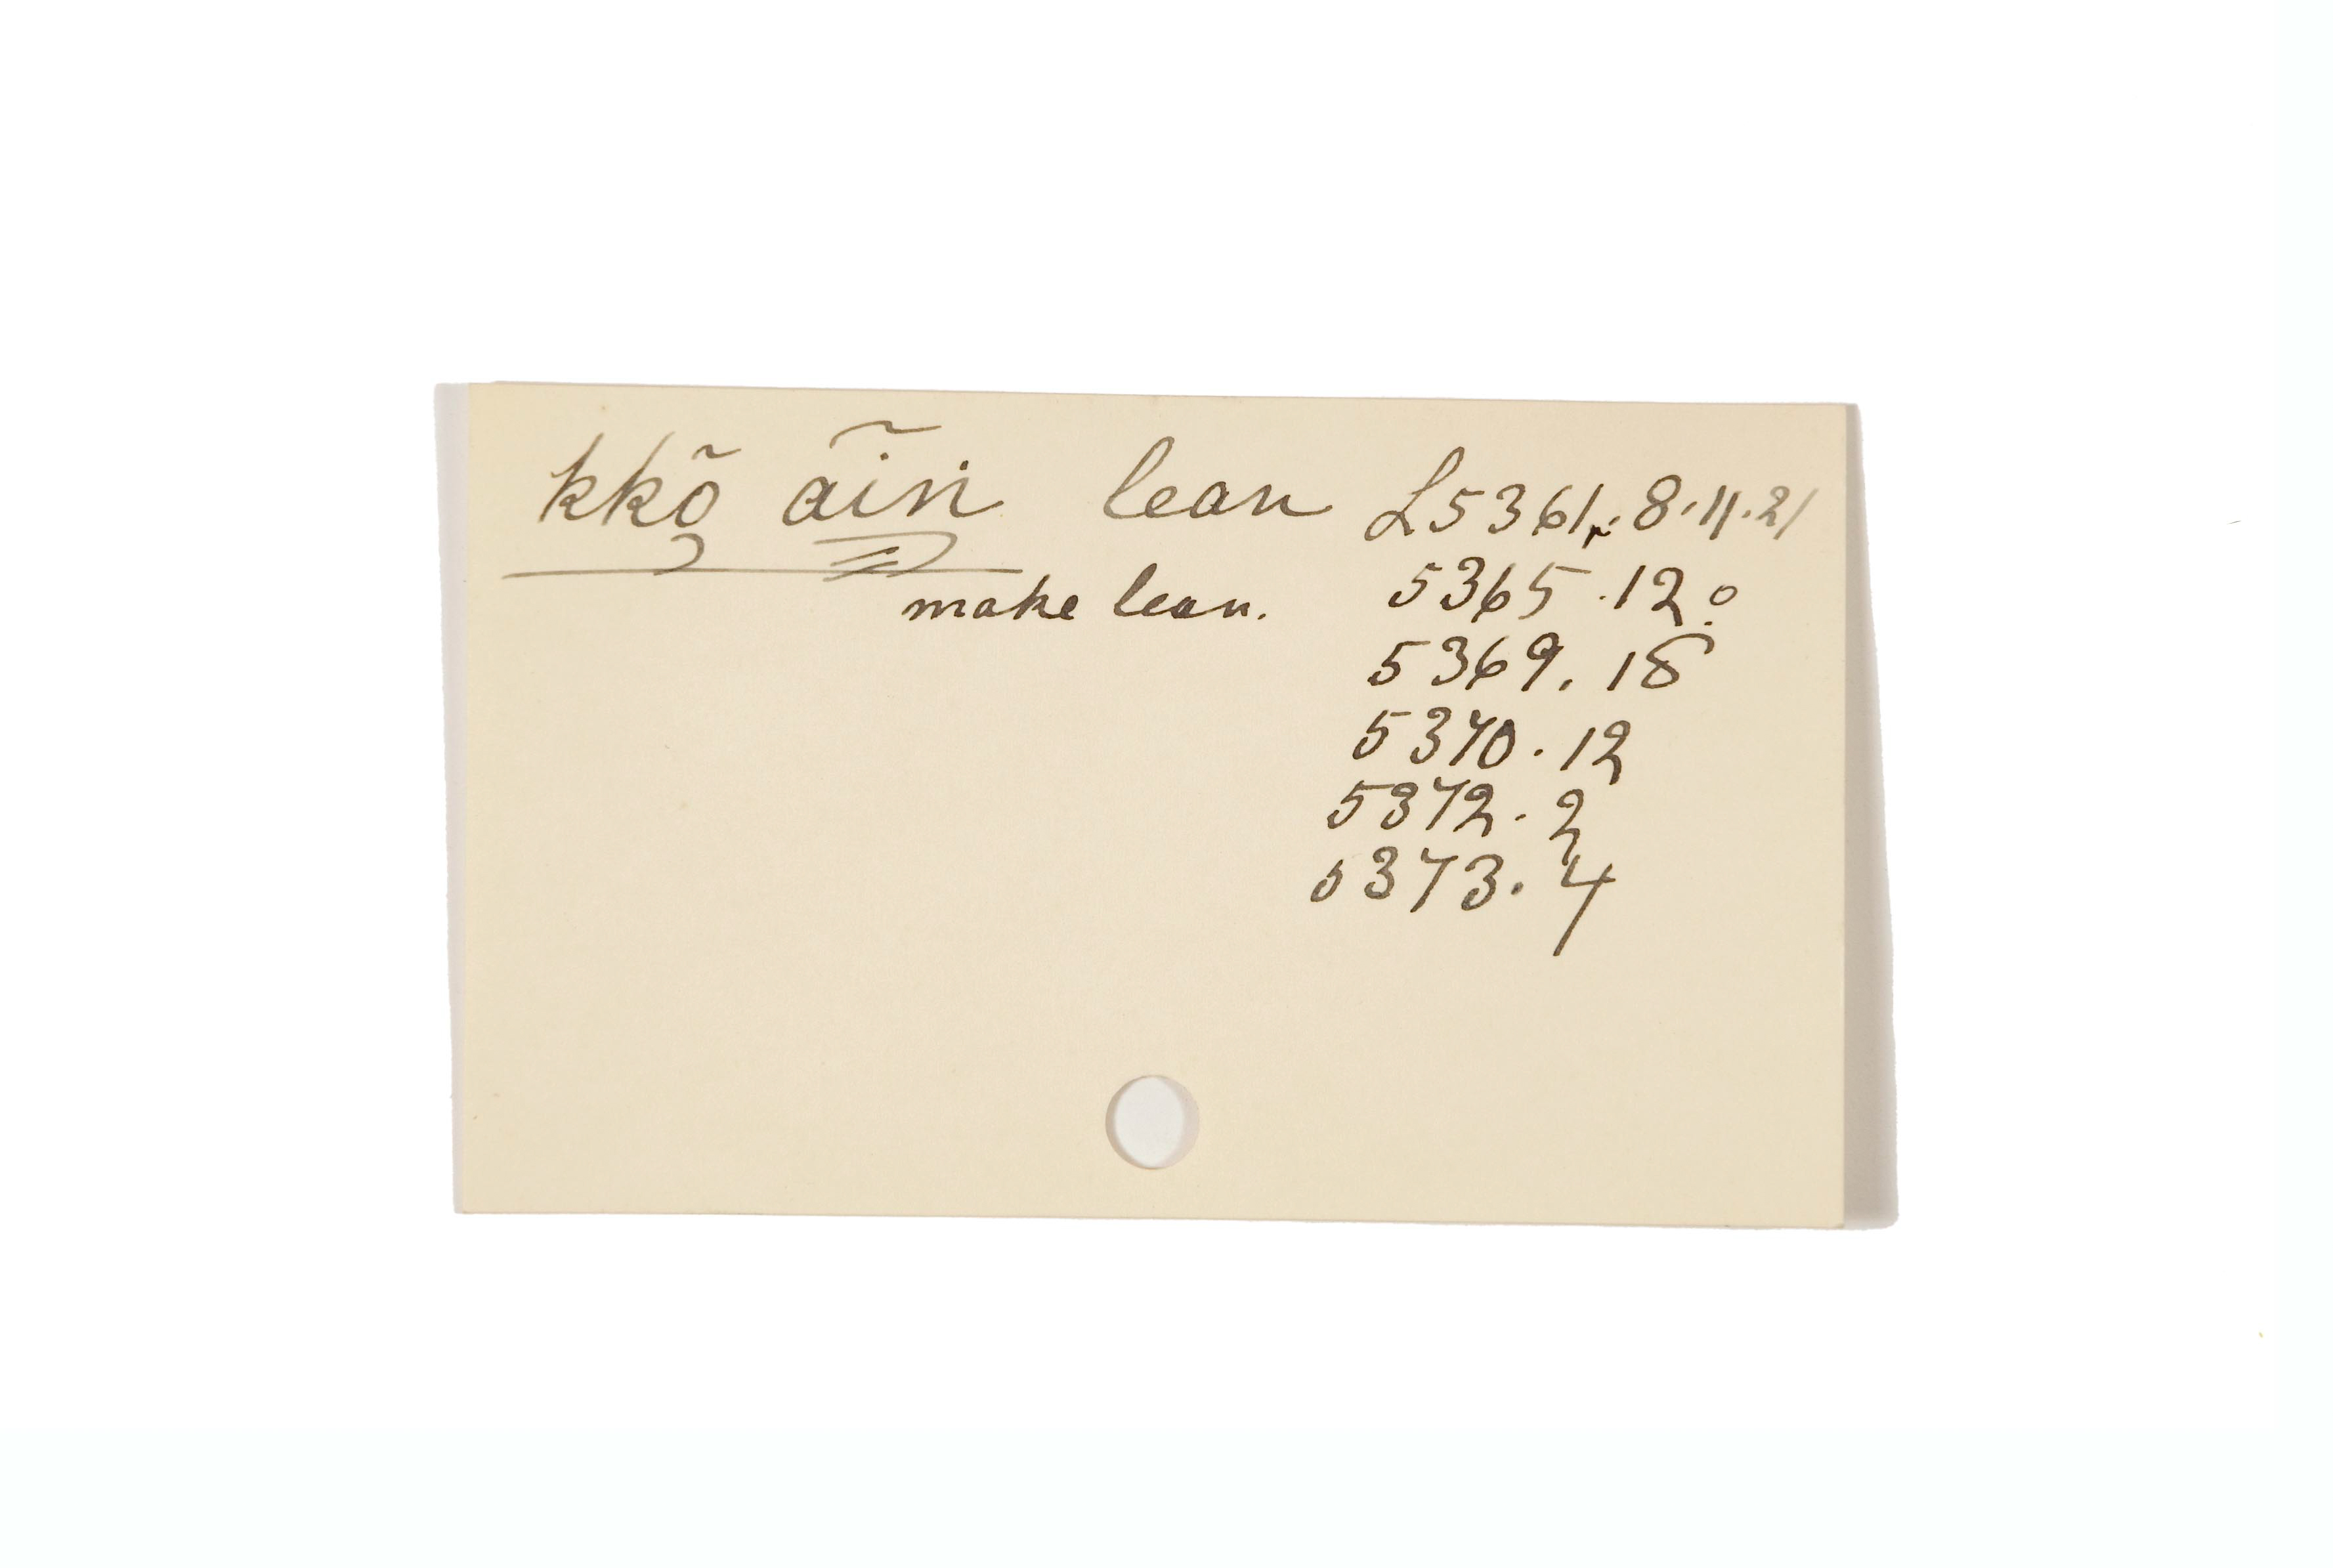 kkõ ãin lean L5361.8.11.21
make lean. 5365.12
5369.18
5370.12
5372.2
5373.4